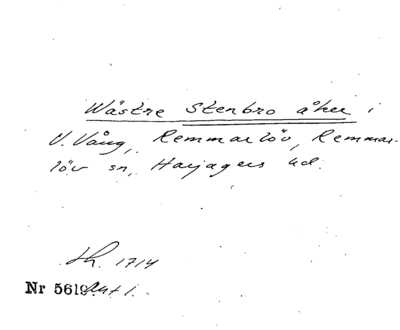 Wästre Stenbro åker i
V. Vång, Remmarlöv, Remmar-
löv sn, Harjagers hd.
Lh. 1714
Nr 5619. Akt 1.